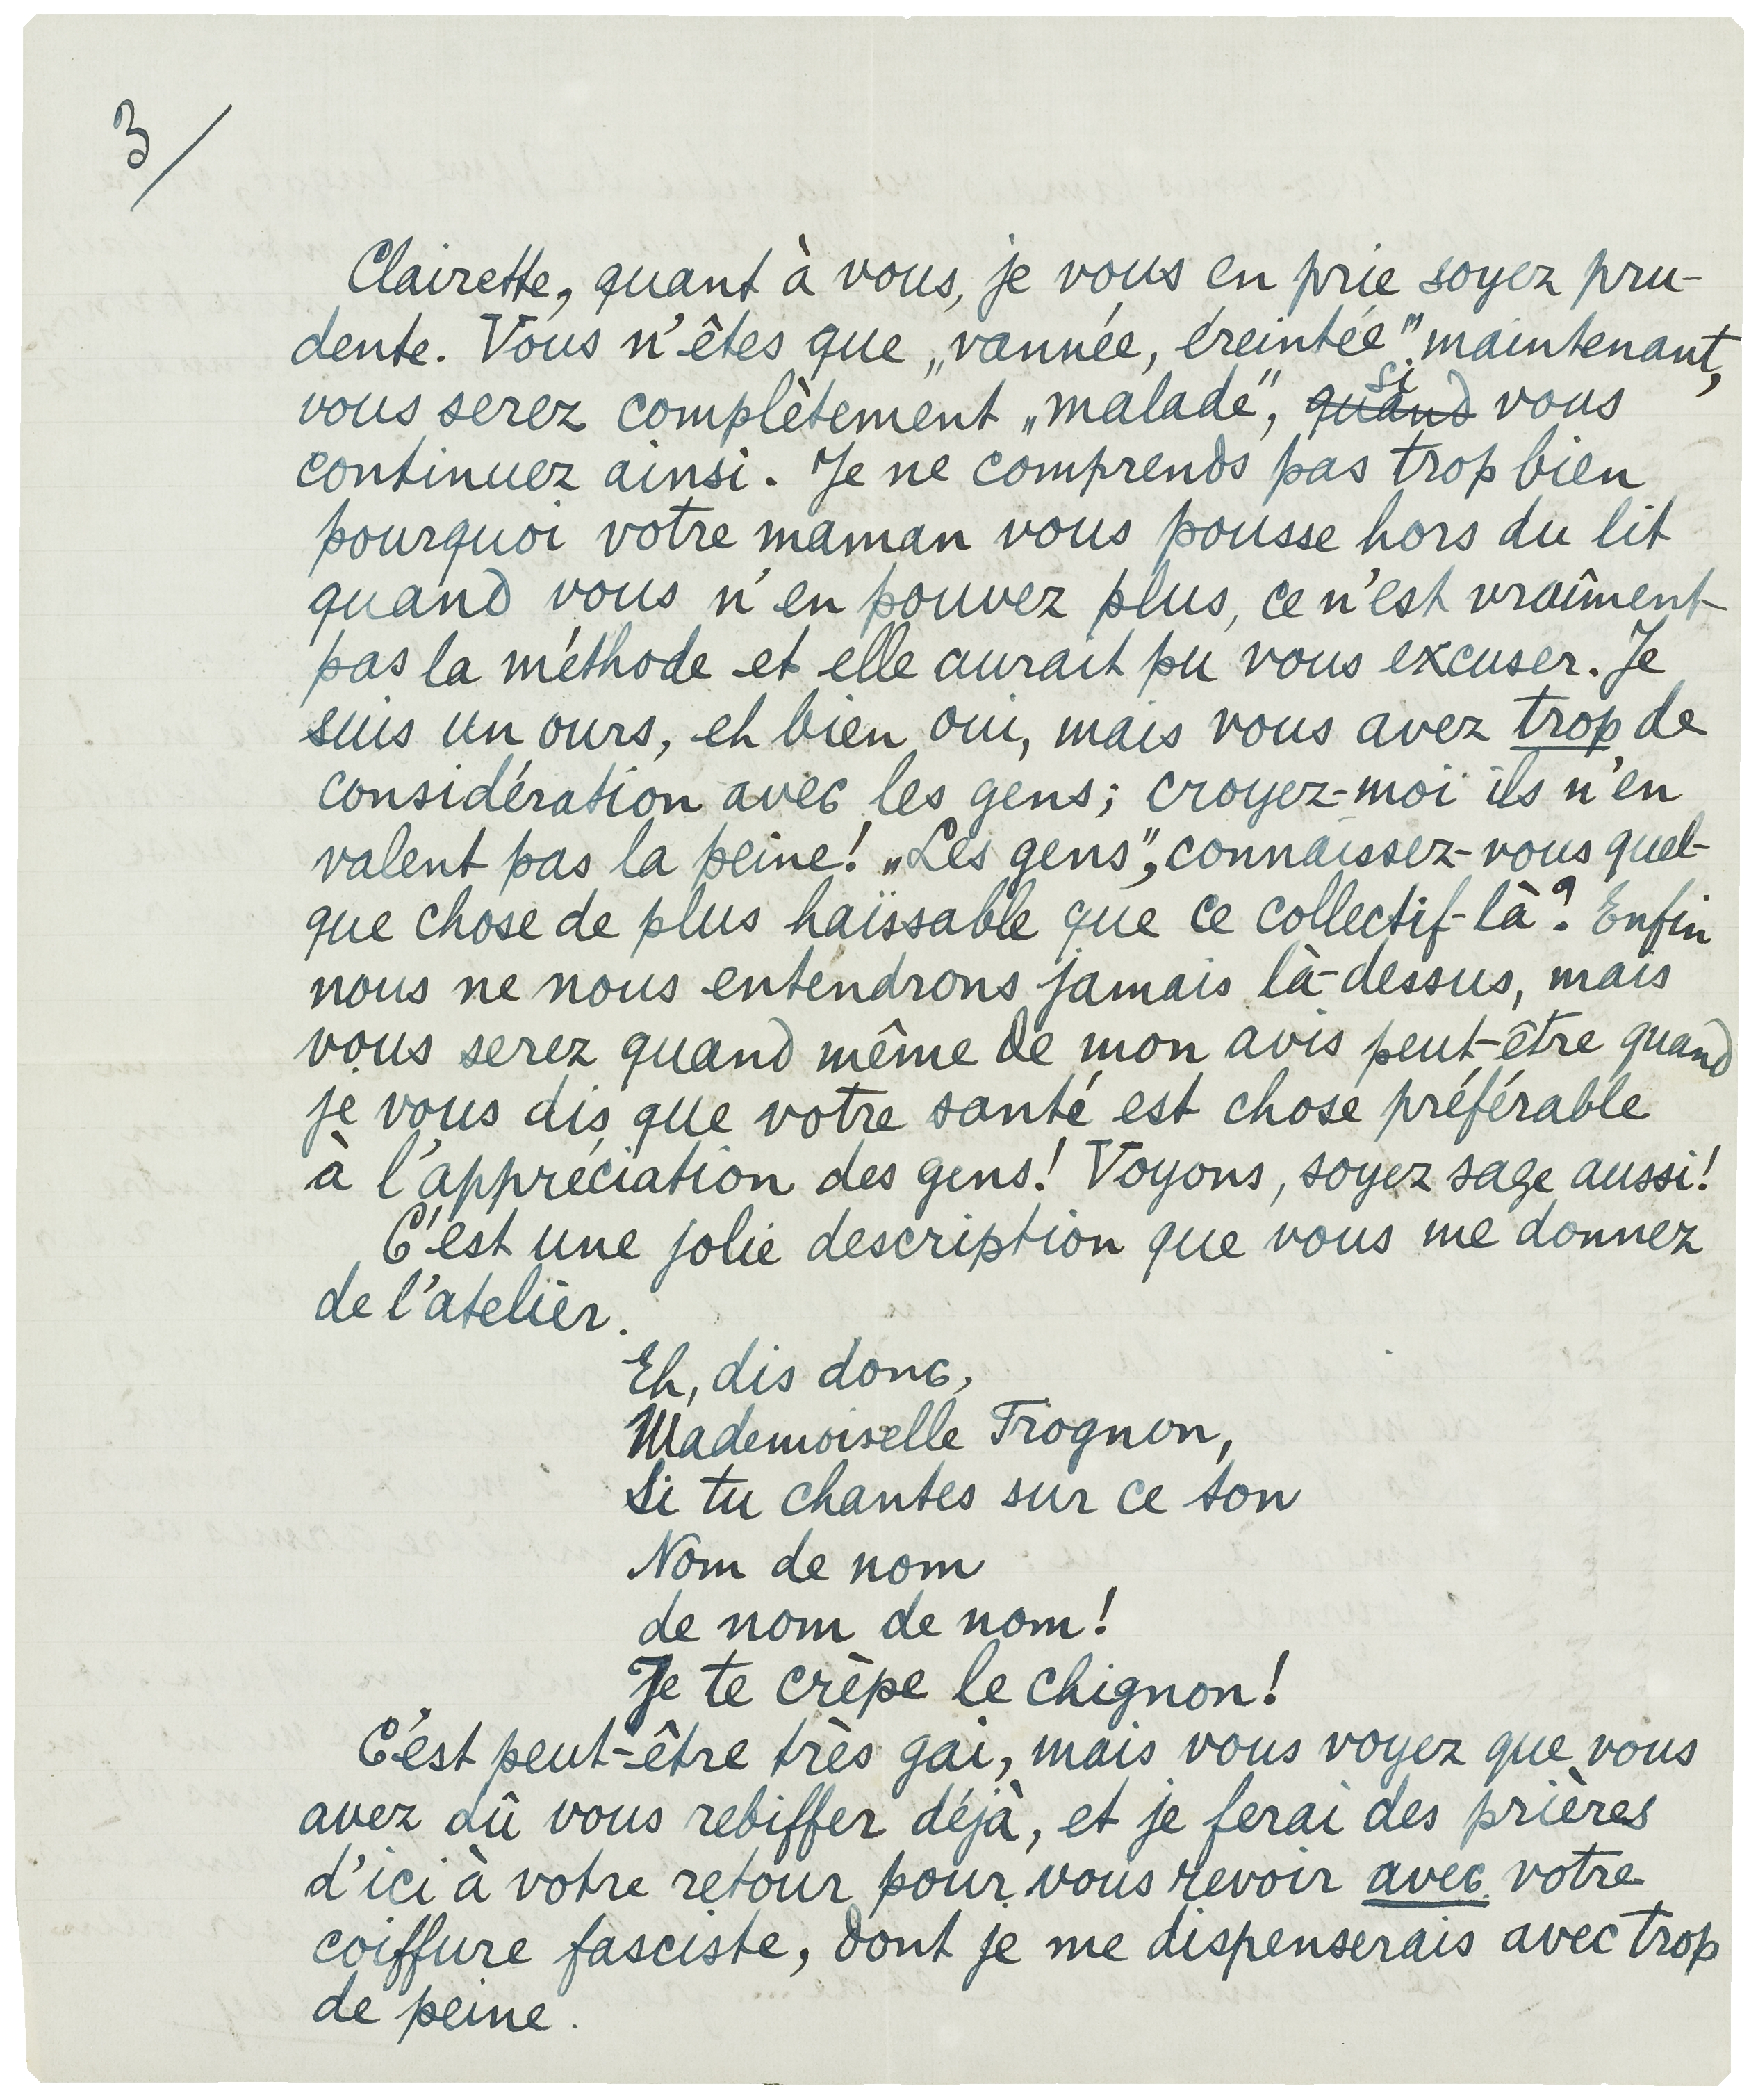 3/
Clairette, quant à vous, je vous en prie soyez pru-
dente. Vous n'êtes que „vannée, éreintée" maintenant,
vous serez complètement „malade", ~~quand~~ si vous
continuez ainsi. Je ne comprends pas trop bien
pourquoi votre maman vous pousse hors du lit
quand vous n'en pouvez plus, ce n'est vraîment
pas la méthode et elle aurait pu vous excuser. Je
suis un ours, eh bien oui, mais vous avez trop de
considération avec les gens; croyez-moi ils n'en
valent pas la peine! „Les gens", connaissez-vous quel-
que chose de plus haïssable que ce collectif-là? Enfin
nous ne nous entendrons jamais là-dessus, mais
vous serez quand même de mon avis peut-être quand
je vous dis que votre santé est chose préférable
à l'appréciation des gens! Voyons, soyez sage aussi!
C'est une jolie description que vous me donnez
de l'atelier.
Eh, dis donc,
Mademoiselle Trognon,
Si tu chantes sur ce ton
Nom de nom
de nom de nom!
Je te crèpe le chignon!
C'est peut-être très gai, mais vous voyez que vous
avez dû vous rebiffer déjà, et je ferai des prières
d'ici à votre retour pour vous revoir avec votre
coiffure fasciste, dont je me dispenserais avec trop
de peine.